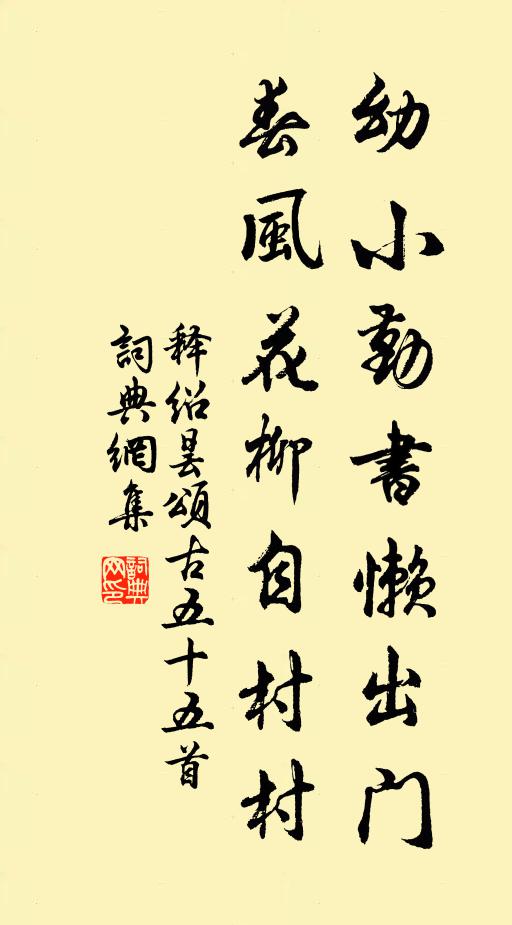 幼小勤書懶出门
春風花柳自村村
释绍昙頌古五十五首
詞典網集
詞典网印